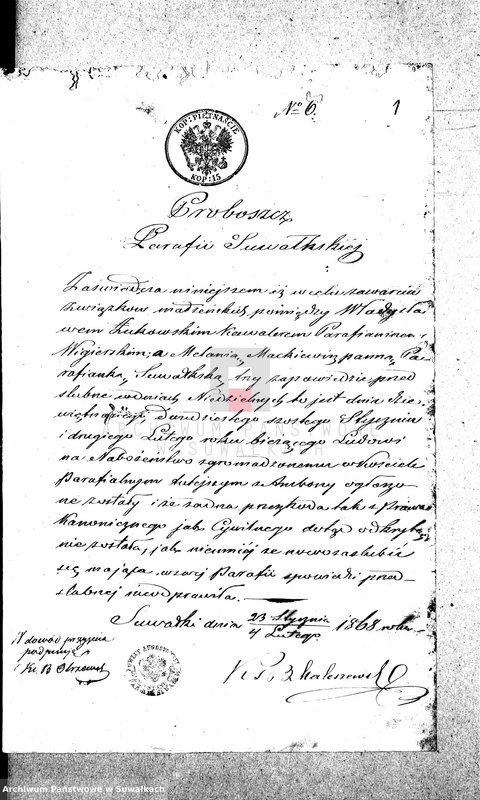 No 6. 1
KOP: PIĘTNAŚCIE
KOP: 15
Proboszcz
Parafii Suwałkskiéj
Zaświadcza niniejszem iż w celu zawarcia
związków małżeńskich pomiędzy Włady sła
wem Żukowskim Kawalerem Parafianinem
Wigierskim; a Melanią Mackiewicz panną, Pa-
rafianką Suwałkską, trzy zapowiedzie przed
ślubne w dniach Niedzielnych to jest dnia dzie-
więtnastego Dwudziestego szóstego Stycznia
i drugiego Lutego roku bieżącego Ludowi
na Nabożeństwo zgromadzonemu w Kościele
Parafialnym tutejszym z Ambony ogłoszo-
ne zostały i że żadna przeszkoda tak z Prawa
Kanonicznego jak Cywilnego dotąd odkrytą
nie została, jak niemniéj że nowozaślubić
się mająca w swéj Parafii spowiedzi przed-
ślubnej nieodprawiła.
Suwałki dnia 23 Stycznia / 4 Lutego 1868 roku
W dowód przyjęcia
podpisuje
Ks. B
ARCHIWUM PAŃSTWOWE
W SUWAŁKACH
Archiwum Państwowe w Suwałkach